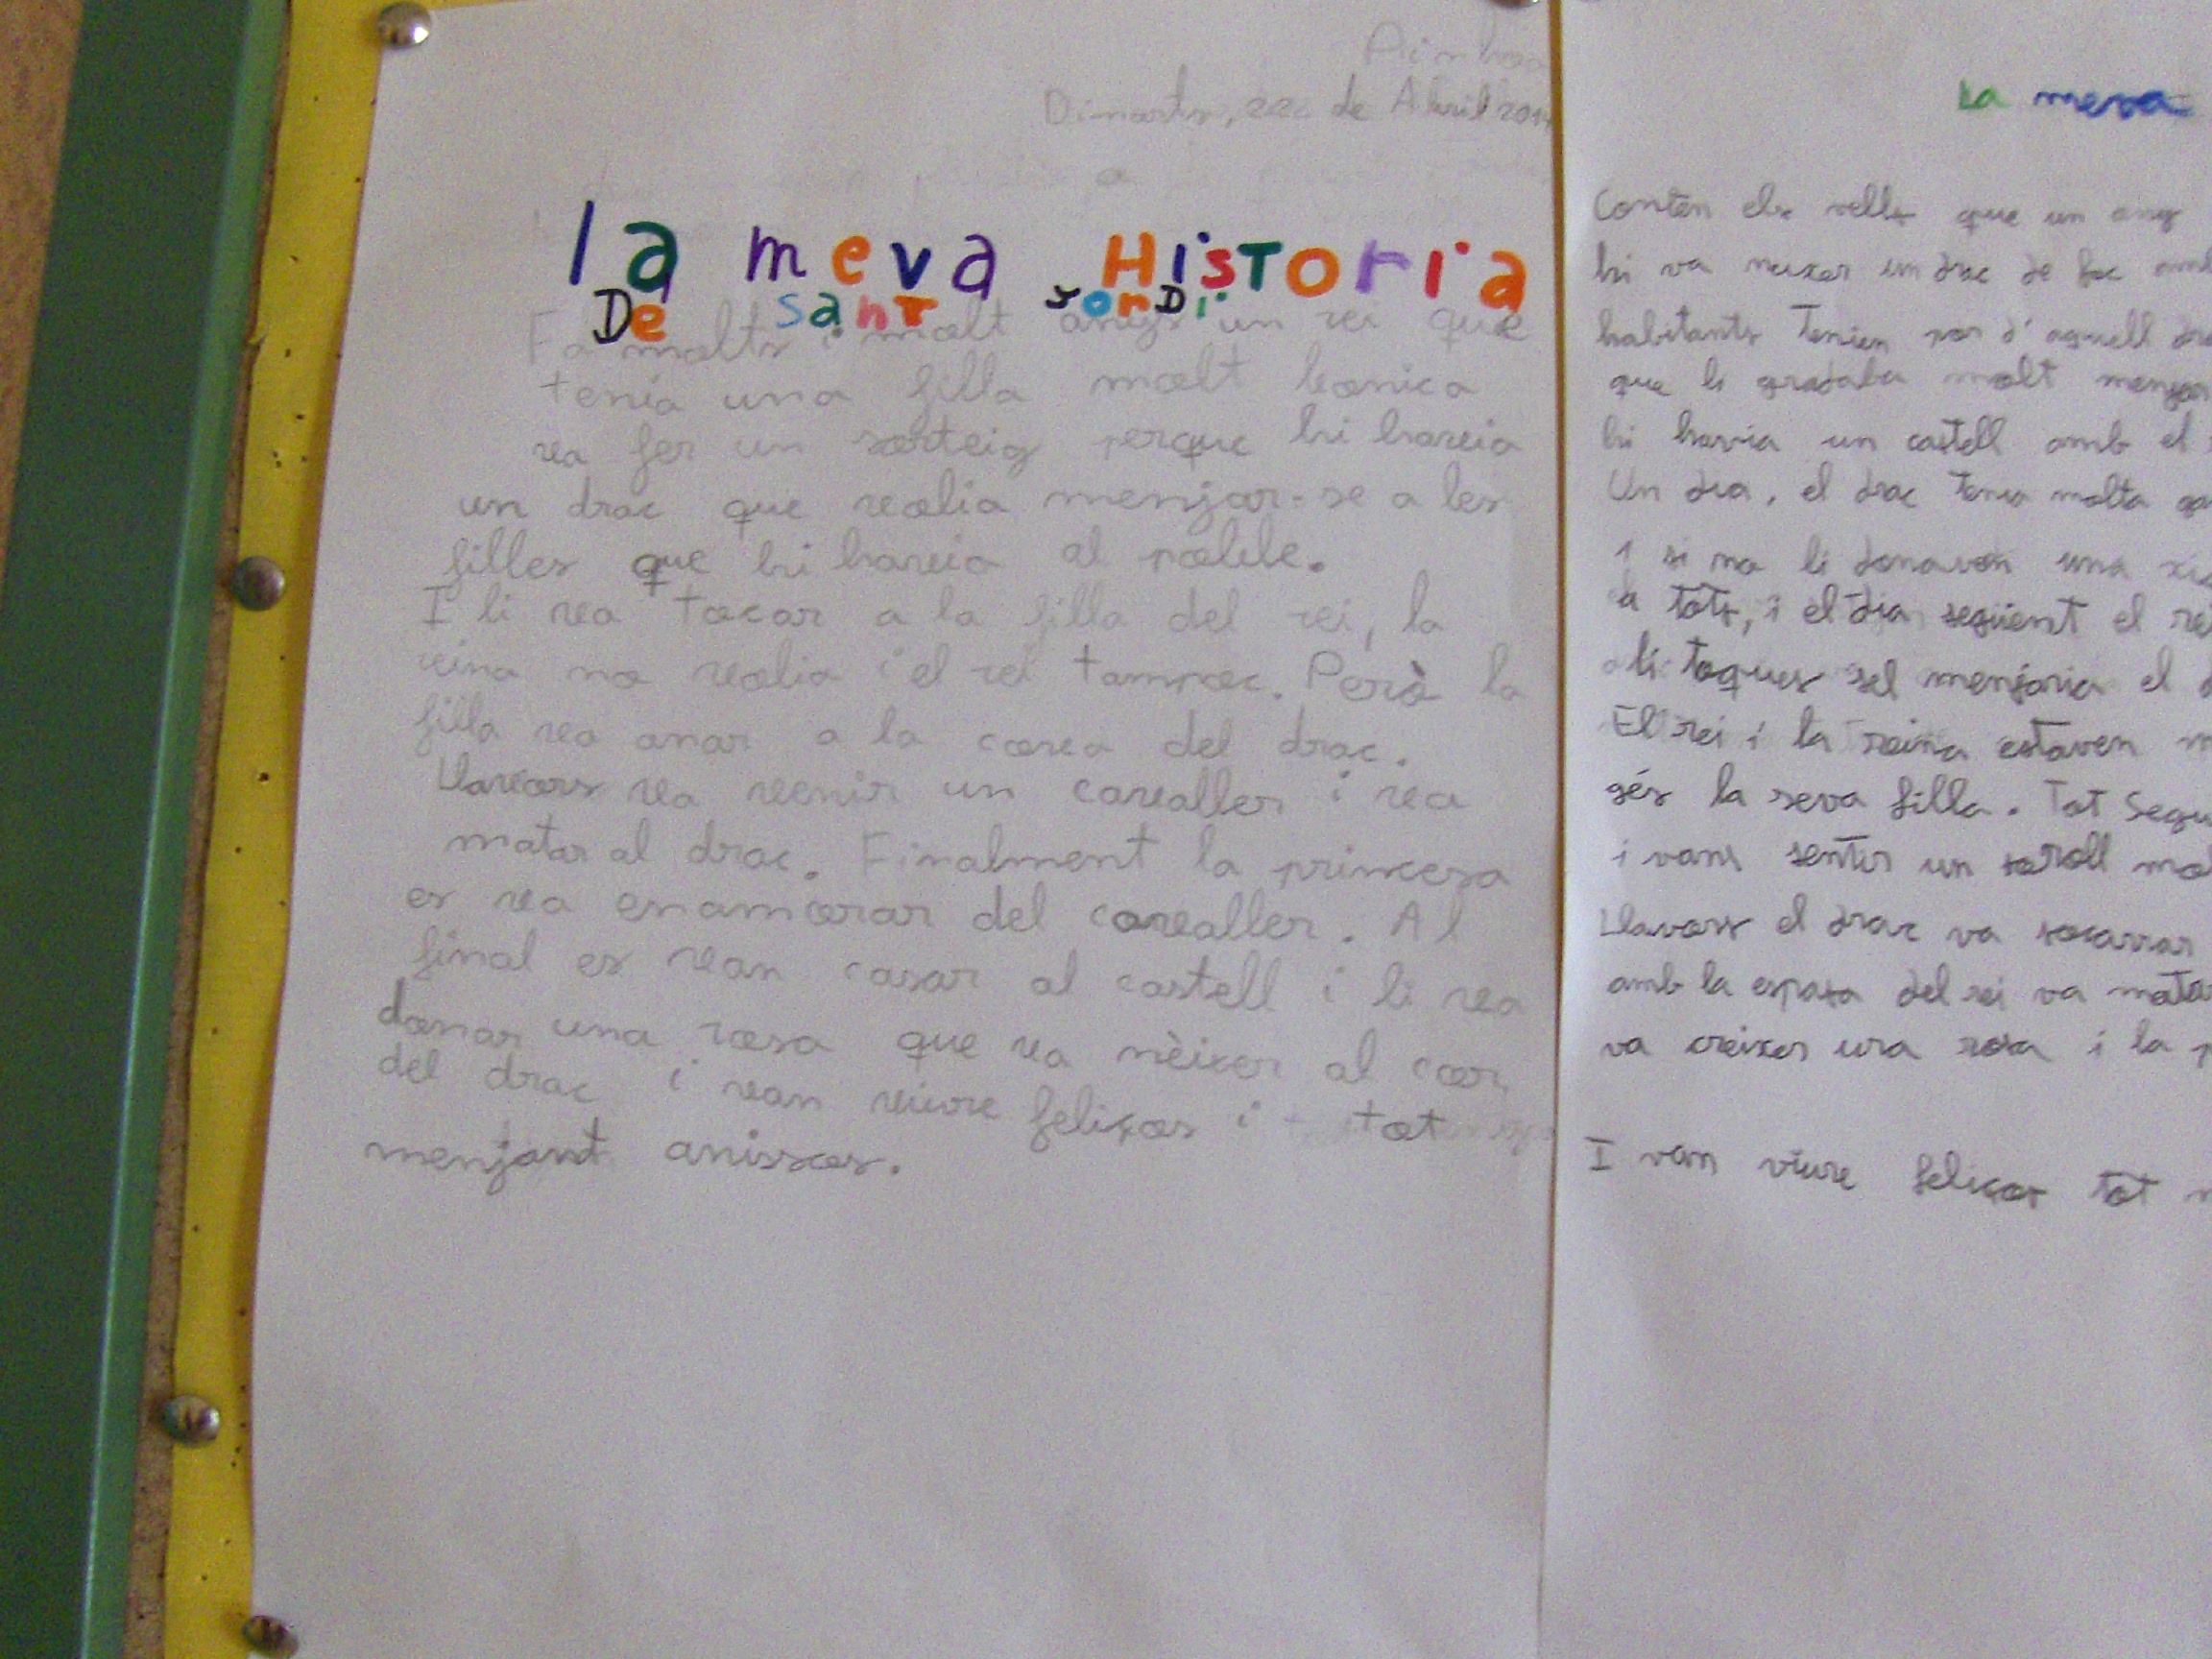 Dimarts, 22 de Abril 201
la meva HisToria
De sant JorDi
Fa molts i molt anys un rei que
tenía una filla molt bonica
va fer un sorteig perque hi havia
un drac que volia menjar-se a les
filles que hi havia al poble.
I li va tocar a la filla del rei, la
reina no volia i el rei tampoc. Però la
filla va anar a la cova del drac.
Llavors va venir un cavaller i va
matar al drac. Finalment la princesa
es va enamorar del cavaller. Al
final es van casar al castell i li va
donar una rosa que va nèixer al cor
del drac i van viure feliços i tot
menjant anissos.
La meva
Conten els vells que un any
hi va neixer un drac de foc amb
habitants Tenien por d'aquell
que li gradaba molt menjar
hi havia un castell amb el
Un dia, el drac Tenia molta
I si no li donaven una
a tots, i el dia següent el rei
li toques sel menjaria el
El rei i la reina estaven
gés la seva filla. Tot Segu
i vans sentir un soroll mol
Llavors el drac va socarrar
amb la espasa del rei va matar
va creixer una rosa i la
I van viure feliços tot